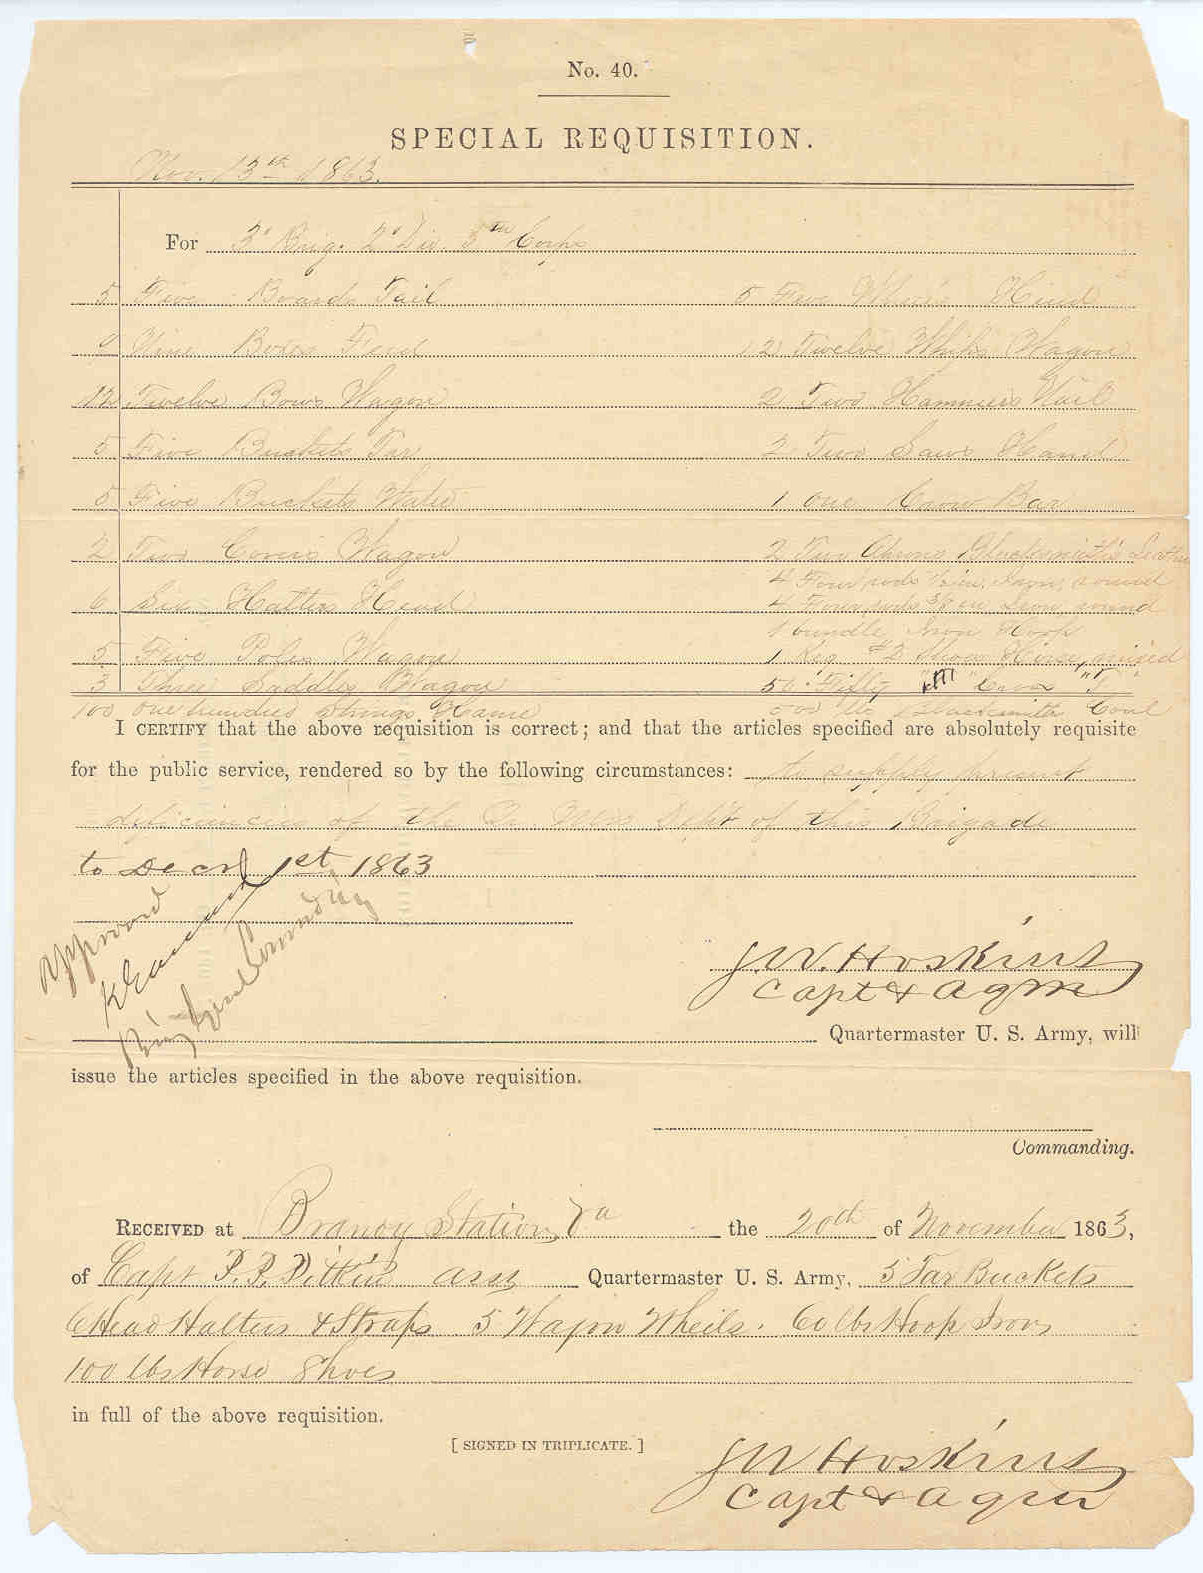 No. 40.
SPECIAL REQUISITION.
Nov. 13th 1863.
For 3d Brig. 2d Div. 5th Corps
5 Five Boards Tail
5 Five Wheels Hind
9 Nine Boxes Feed
12 Twelve Whips Wagon
12 Twelve Bows Wagon
2 Two Hammers Nail
5 Five Buckets Tar
2 Two Saws Hand
5 Five Buckets Water
1 One Crow Bar
2 Two Covers Wagon
2 Two Aprons Blacksmith's Leather
4 Four rods 1/2 in. Iron, round
6 Six Halters Head
4 Four rods 3/8 in Iron, round
1 bundle Iron Hoop
5 Five Poles Wagon
1 Keg #2 Shoes Horse, mixed
3 Three Saddles Wagon
50 Fifty
100 one hundred Strings Hame
500 lbs Blacksmith Coal
I CERTIFY that the above requisition is correct; and that the articles specified are absolutely requisite
for the public service, rendered so by the following circumstances: to supply present
deficiencies of the Qr. Mrs Dept of this Brigade
to Decr 1st 1863
Approved
Brig Genl Comndg
J.W. Hoskins
Capt & AQM
Quartermaster U. S. Army, will
issue the articles specified in the above requisition.
Commanding.
RECEIVED at Brandy Station Va the 20th of November 1863,
of Capt P.P. Pitkin AQM Quartermaster U. S. Army, 5 Tar Buckets
6 Head Halters & Straps 5 Wagon Wheels. 60 lbs Hoop Iron
100 lbs Horse Shoes
in full of the above requisition.
[ SIGNED IN TRIPLICATE. ]
J W Hoskins
Capt & AQM